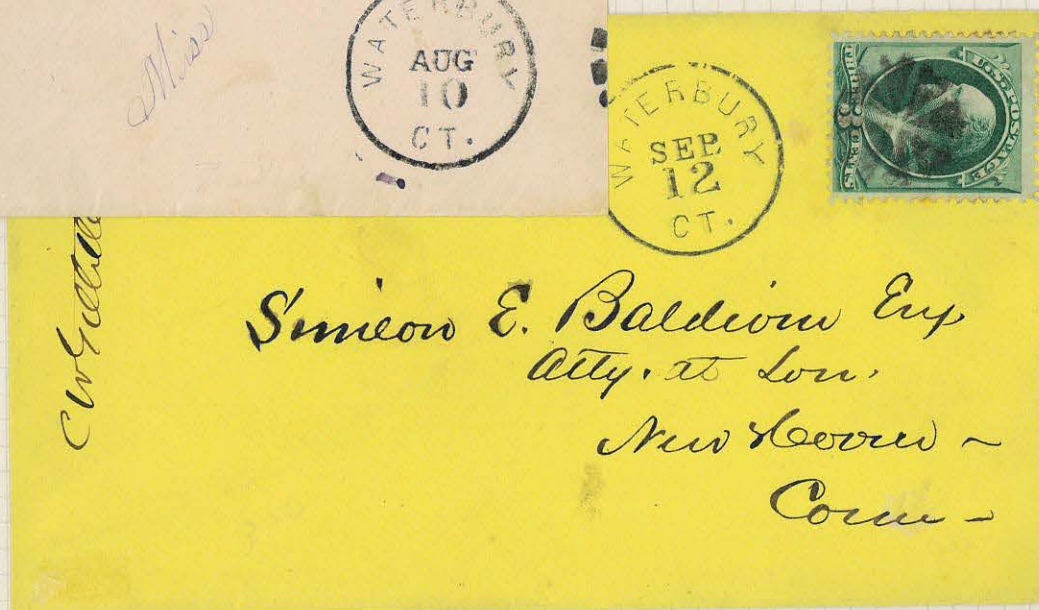 Miss
WATERBURY
AUG
10
CT.
WATERBURY
SEP
12
CT.
U.S. POSTAGE
THREE CENTS
Simeon E. Baldwin Esq
Atty. at Law.
New Haven -
Conn -